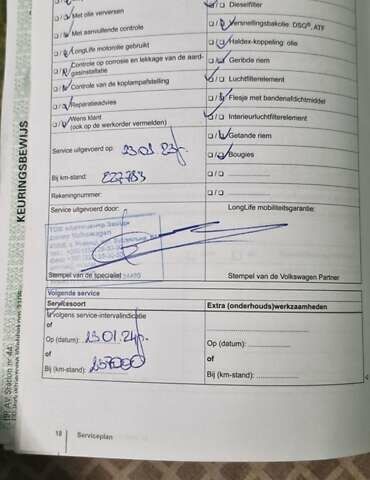 Dieselfilter
Met olie verversen
Versnellingsbakolie: DSG®, ATF
Met aanvullende controle
Haldex-koppeling: olie
LongLife motorolie gebruikt
Geribde riem
Controle op corrosie en lekkage van de aard-
gasinstallatie
Luchtfilterelement
Controle van de koplampafstelling
Flesje met bandenafdichtmiddel
Reparatieadvies
Interieurluchtfilterelement
Wens klant
(ook op de werkorder vermelden)
Getande riem
Service uitgevoerd op: 23.01.23
Bougies
Bij km-stand: 227783
Rekeningnummer:
Service uitgevoerd door:
LongLife mobiliteitsgarantie:
Stempel van de specialist
Stempel van de Volkswagen Partner
Volgende service
Servicesoort
Extra (onderhouds)werkzaamheden
Volgens service-intervalindicatie
of
Op (datum): 23.01.24
Op (datum):
of
of
Bij (km-stand): 257000
Bij (km-stand):
18 Serviceplan
KEURINGSBEWIJS